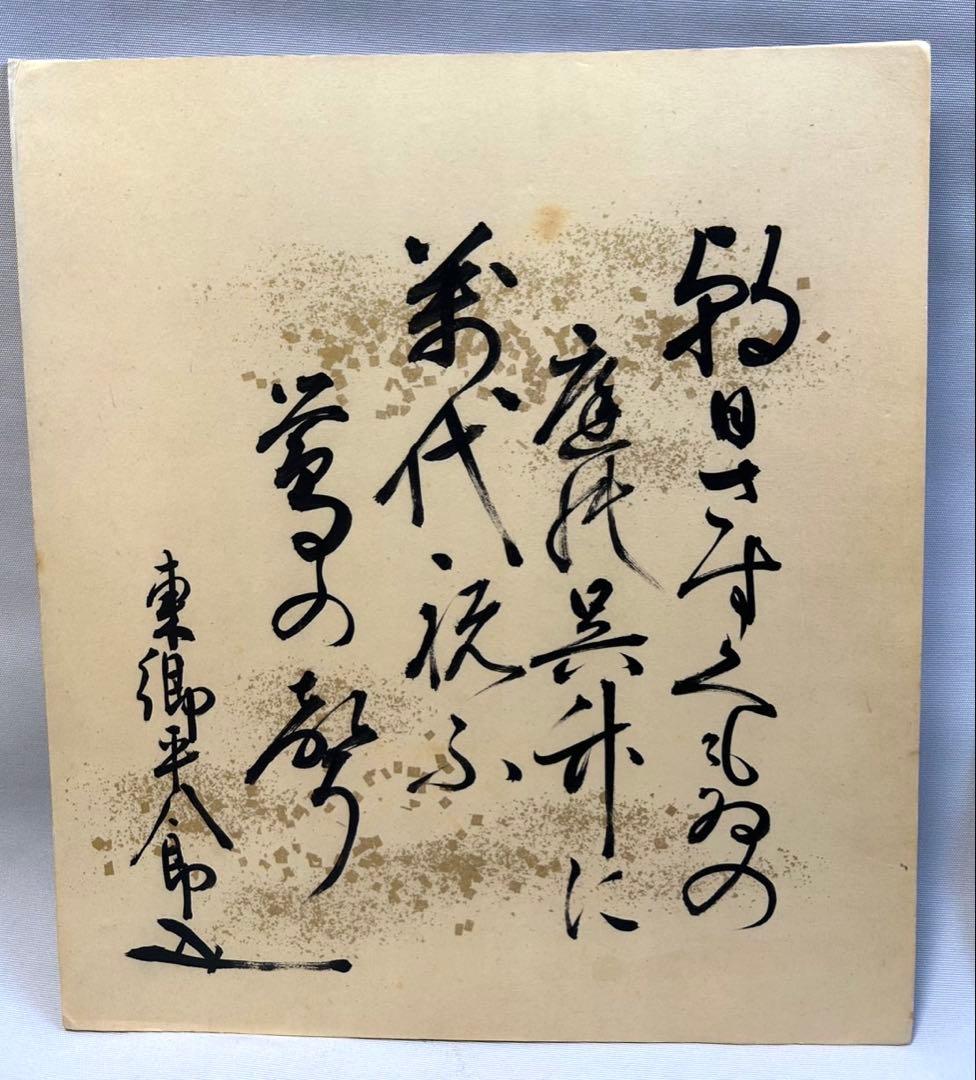 朝日さすくもゐの
庭の呉竹に
萬代祝ふ
鶯の聲
東郷平八郎